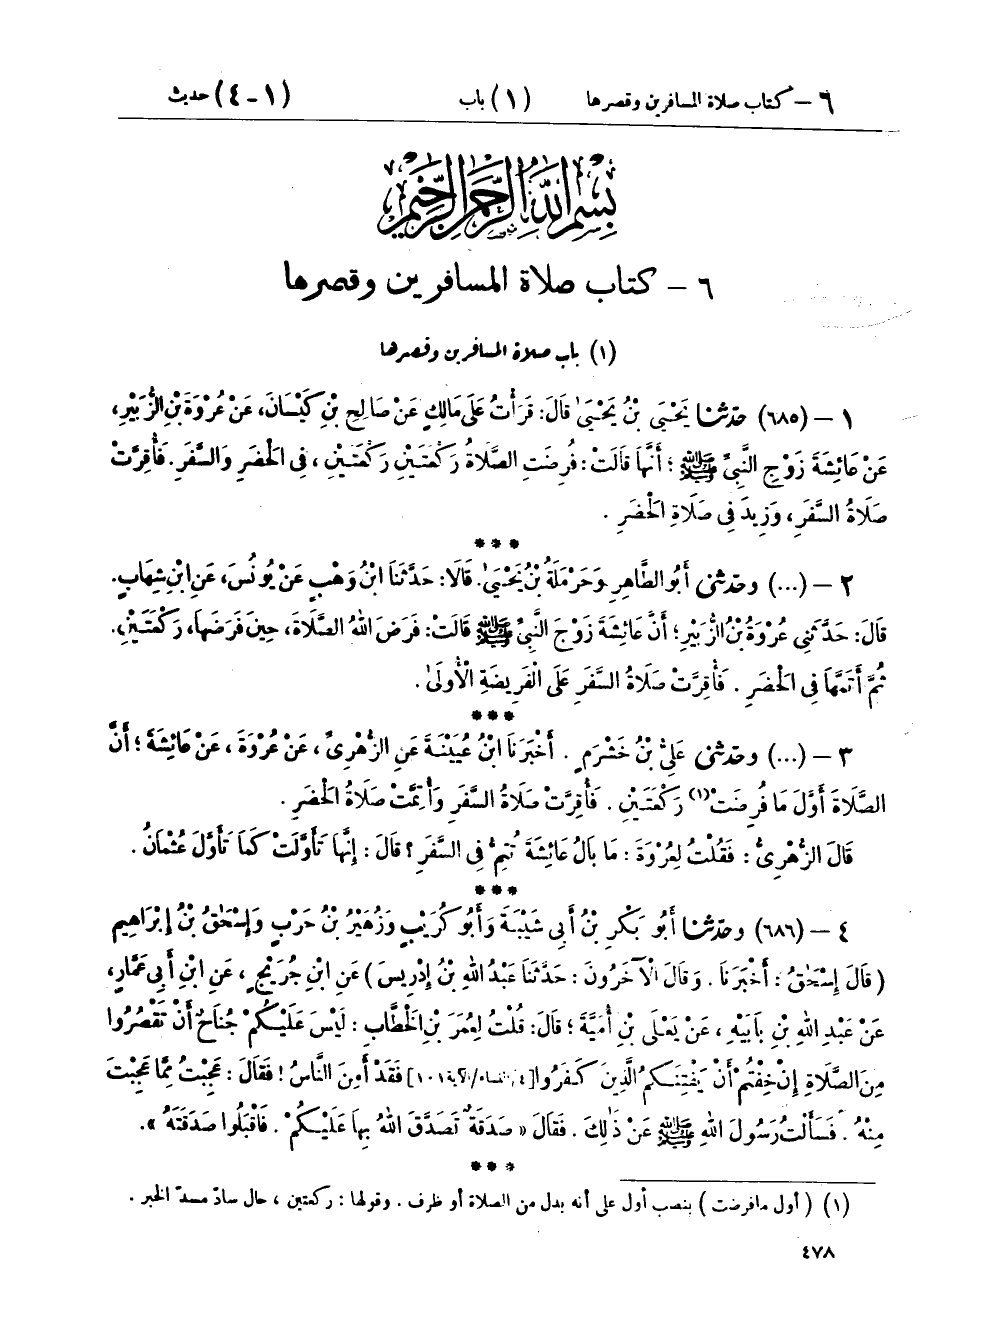 ٦ – كتاب صلاة المسافرين وقصرها (١) باب (١-٤) حديث
بِسْمِ اللَّهِ الرَّحْمَٰنِ الرَّحِيمِ
٦ – كتاب صلاة المسافرين وقصرها
(١) باب صلاة المسافرين وقصرها
١ – (٦٨٥) حَدَّثَنَا يَحْيَىٰ بْنُ يَحْيَىٰ قَالَ: قَرَأْتُ عَلَىٰ مَالِكٍ عَنْ صَالِحِ بْنِ كَيْسَانَ، عَنْ عُرْوَةَ بْنِ الزُّبَيْرِ،
عَنْ عَائِشَةَ زَوْجِ النَّبِيِّ ﷺ؛ أَنَّهَا قَالَتْ: فُرِضَتِ الصَّلَاةُ رَكْعَتَيْنِ رَكْعَتَيْنِ، فِي الْحَضَرِ وَالسَّفَرِ. فَأُقِرَّتْ
صَلَاةُ السَّفَرِ، وَزِيدَ فِي صَلَاةِ الْحَضَرِ.
***
٢ – (...) وحَدَّثَنِي أَبُو الطَّاهِرِ وَحَرْمَلَةُ بْنُ يَحْيَىٰ. قَالَا: حَدَّثَنَا ابْنُ وَهْبٍ عَنْ يُونُسَ، عَنِ ابْنِ شِهَابٍ.
قَالَ: حَدَّثَنِي عُرْوَةُ بْنُ الزُّبَيْرِ؛ أَنَّ عَائِشَةَ زَوْجَ النَّبِيِّ ﷺ قَالَتْ: فَرَضَ اللَّهُ الصَّلَاةَ، حِينَ فَرَضَهَا، رَكْعَتَيْنِ.
ثُمَّ أَتَمَّهَا فِي الْحَضَرِ. فَأُقِرَّتْ صَلَاةُ السَّفَرِ عَلَى الْفَرِيضَةِ الْأُولَىٰ.
***
٣ – (...) وحَدَّثَنِي عَلِيُّ بْنُ خَشْرَمٍ. أَخْبَرَنَا ابْنُ عُيَيْنَةَ عَنِ الزُّهْرِيِّ، عَنْ عُرْوَةَ، عَنْ عَائِشَةَ؛ أَنَّ
الصَّلَاةَ أَوَّلَ مَا فُرِضَتْ(١) رَكْعَتَيْنِ. فَأُقِرَّتْ صَلَاةُ السَّفَرِ وَأُتِمَّتْ صَلَاةُ الْحَضَرِ.
قَالَ الزُّهْرِيُّ: فَقُلْتُ لِعُرْوَةَ: مَا بَالُ عَائِشَةَ تُتِمُّ فِي السَّفَرِ؟ قَالَ: إِنَّهَا تَأَوَّلَتْ كَمَا تَأَوَّلَ عُثْمَانُ.
***
٤ – (٦٨٦) وحَدَّثَنَا أَبُو بَكْرِ بْنُ أَبِي شَيْبَةَ وَأَبُو كُرَيْبٍ وَزُهَيْرُ بْنُ حَرْبٍ وَإِسْحَٰقُ بْنُ إِبْرَاهِيمَ
(قَالَ إِسْحَٰقُ: أَخْبَرَنَا. وَقَالَ الْآخَرُونَ: حَدَّثَنَا عَبْدُ اللَّهِ بْنُ إِدْرِيسَ) عَنِ ابْنِ جُرَيْجٍ، عَنِ ابْنِ أَبِي عَمَّارٍ،
عَنْ عَبْدِ اللَّهِ بْنِ بَابَيْهِ، عَنْ يَعْلَى بْنِ أُمَيَّةَ؛ قَالَ: قُلْتُ لِعُمَرَ بْنِ الْخَطَّابِ: لَيْسَ عَلَيْكُمْ جُنَاحٌ أَنْ تَقْصُرُوا
مِنَ الصَّلَاةِ إِنْ خِفْتُمْ أَنْ يَفْتِنَكُمُ الَّذِينَ كَفَرُوا [٤/النساء/الآية ١٠١] فَقَدْ أَمِنَ النَّاسُ! فَقَالَ: عَجِبْتُ مِمَّا عَجِبْتَ
مِنْهُ. فَسَأَلْتُ رَسُولَ اللَّهِ ﷺ عَنْ ذَٰلِكَ. فَقَالَ «صَدَقَةٌ تَصَدَّقَ اللَّهُ بِهَا عَلَيْكُمْ. فَاقْبَلُوا صَدَقَتَهُ».
***
(١) (أول ما فرضت) بنصب أول على أنه بدل من الصلاة أو ظرف. وقولها: ركعتين، حال سادّ مسدّ الخبر.
٤٧٨